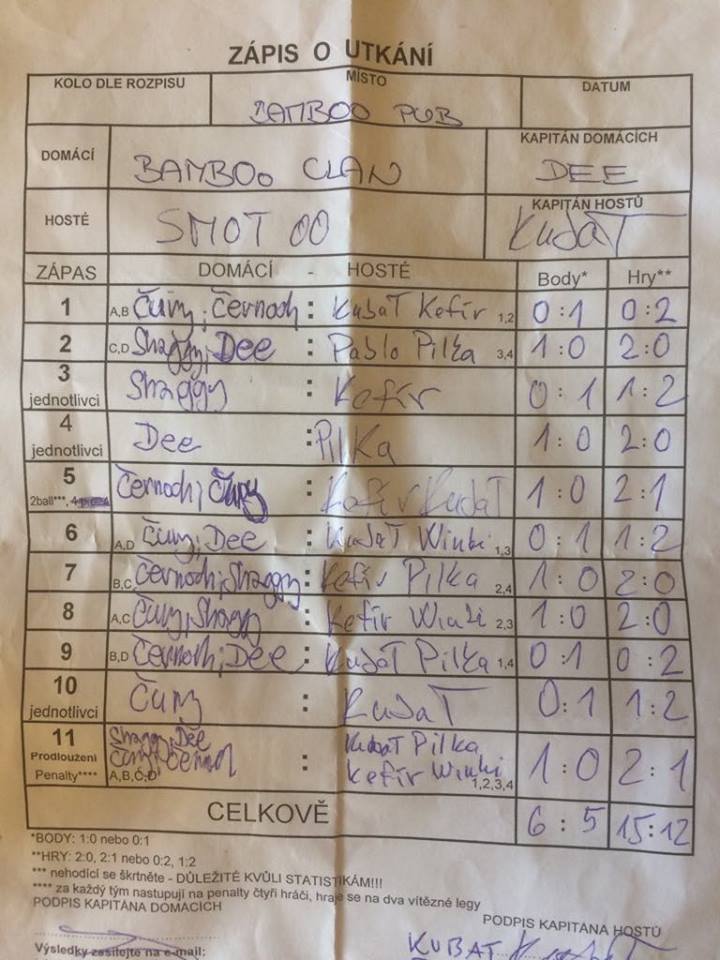 ZÁPIS O UTKÁNÍ
KOLO DLE ROZPISU MÍSTO DATUM
BAMBOO PUB
DOMÁCÍ BAMBOO CLAN KAPITÁN DOMÁCÍCH DEE
HOSTÉ SMOT OO KAPITÁN HOSTŮ KubaT
ZÁPAS DOMÁCÍ - HOSTÉ Body* Hry**
1 A,B Čury, Černoch : KubaT Kefír 1,2 0:1 0:2
2 C,D Shaggy, Dee : Pablo Pilka 3,4 1:0 2:0
3 jednotlivci Shaggy : Kefír 0:1 1:2
4 jednotlivci Dee : Pilka 1:0 2:0
5 2ball***, Černoch, Čury : Kefír KubaT 1:0 2:1
6 A,D Čury, Dee : KubaT Winki 1,3 0:1 1:2
7 B,C Černoch, Shaggy : Kefír Pilka 2,4 1:0 2:0
8 A,C Čury, Shaggy : Kefír Winki 2,3 1:0 2:0
9 B,D Černoch, Dee : KubaT Pilka 1,4 0:1 0:2
10 jednotlivci Čury : KubaT 0:1 1:2
11 Shaggy, Dee KubaT Pilka
Prodloužení Čury, Černoch : Kefír Winki 1:0 2:1
Penalty**** A,B,C,D 1,2,3,4
CELKOVĚ 6:5 15:12
*BODY: 1:0 nebo 0:1
**HRY: 2:0, 2:1 nebo 0:2, 1:2
*** nehodící se škrtněte - DŮLEŽITÉ KVŮLI STATISTIKÁM!!!
**** za každý tým nastupují na penalty čtyři hráči, hraje se na dva vítězné legy
PODPIS KAPITÁNA DOMÁCÍCH PODPIS KAPITÁNA HOSTŮ
Výsledky zasílejte na e-mail: KUBAT